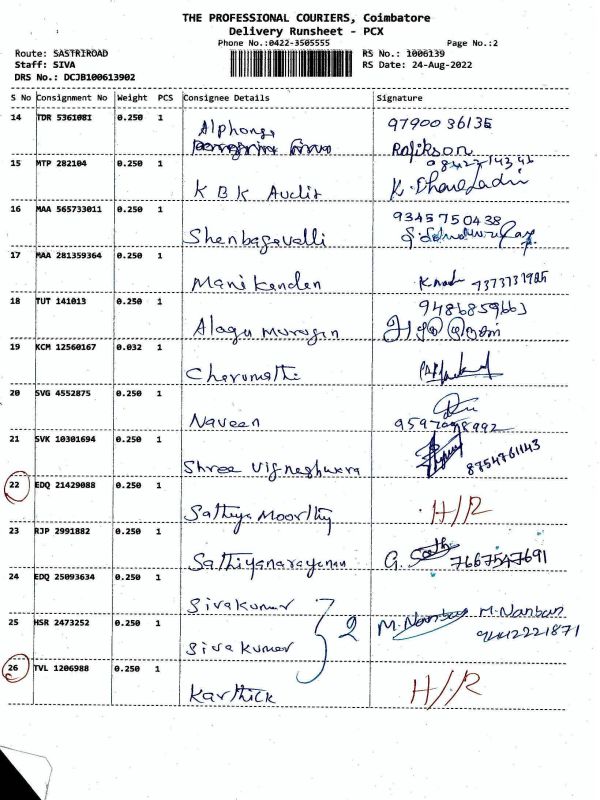 THE PROFESSIONAL COURIERS, Coimbatore
Delivery Runsheet - PCX
Phone No.:0422-3505555 Page No.:2
Route: SASTRIROAD RS No.: 1006139
Staff: SIVA RS Date: 24-Aug-2022
DRS No.: DCJB100613902
S No Consignment No Weight PCS Consignee Details Signature
14 TDR 5361081 0.250 1
Alphonsa 9790036135
Rajikson
15 MTP 282104 0.250 1
KBK Audit K.
16 MAA 565733011 0.250 1 9345750438
Shenbagavalli
17 MAA 281359364 0.250 1
Manikandan 7373731985
18 TUT 141013 0.250 1 9486859663
Alagu Murugan அழகு முருகன்
19 KCM 12560167 0.032 1
Charumathi
20 SVG 4552875 0.250 1
Naveen 9597098992
21 SVK 10301694 0.250 1
Shree Vigneshwara 8754761143
22 EDQ 21429088 0.250 1
Sathya Moorthy H/R
23 RJP 2991882 0.250 1
Sathiyanarayanan G. Sath 7667547691
24 EDQ 25093634 0.250 1
Sivakumar
25 HSR 2473252 0.250 1 2 M. Nanban M. Nanban
Sivakumar 9442221871
26 TVL 1206988 0.250 1
Karthick H/R